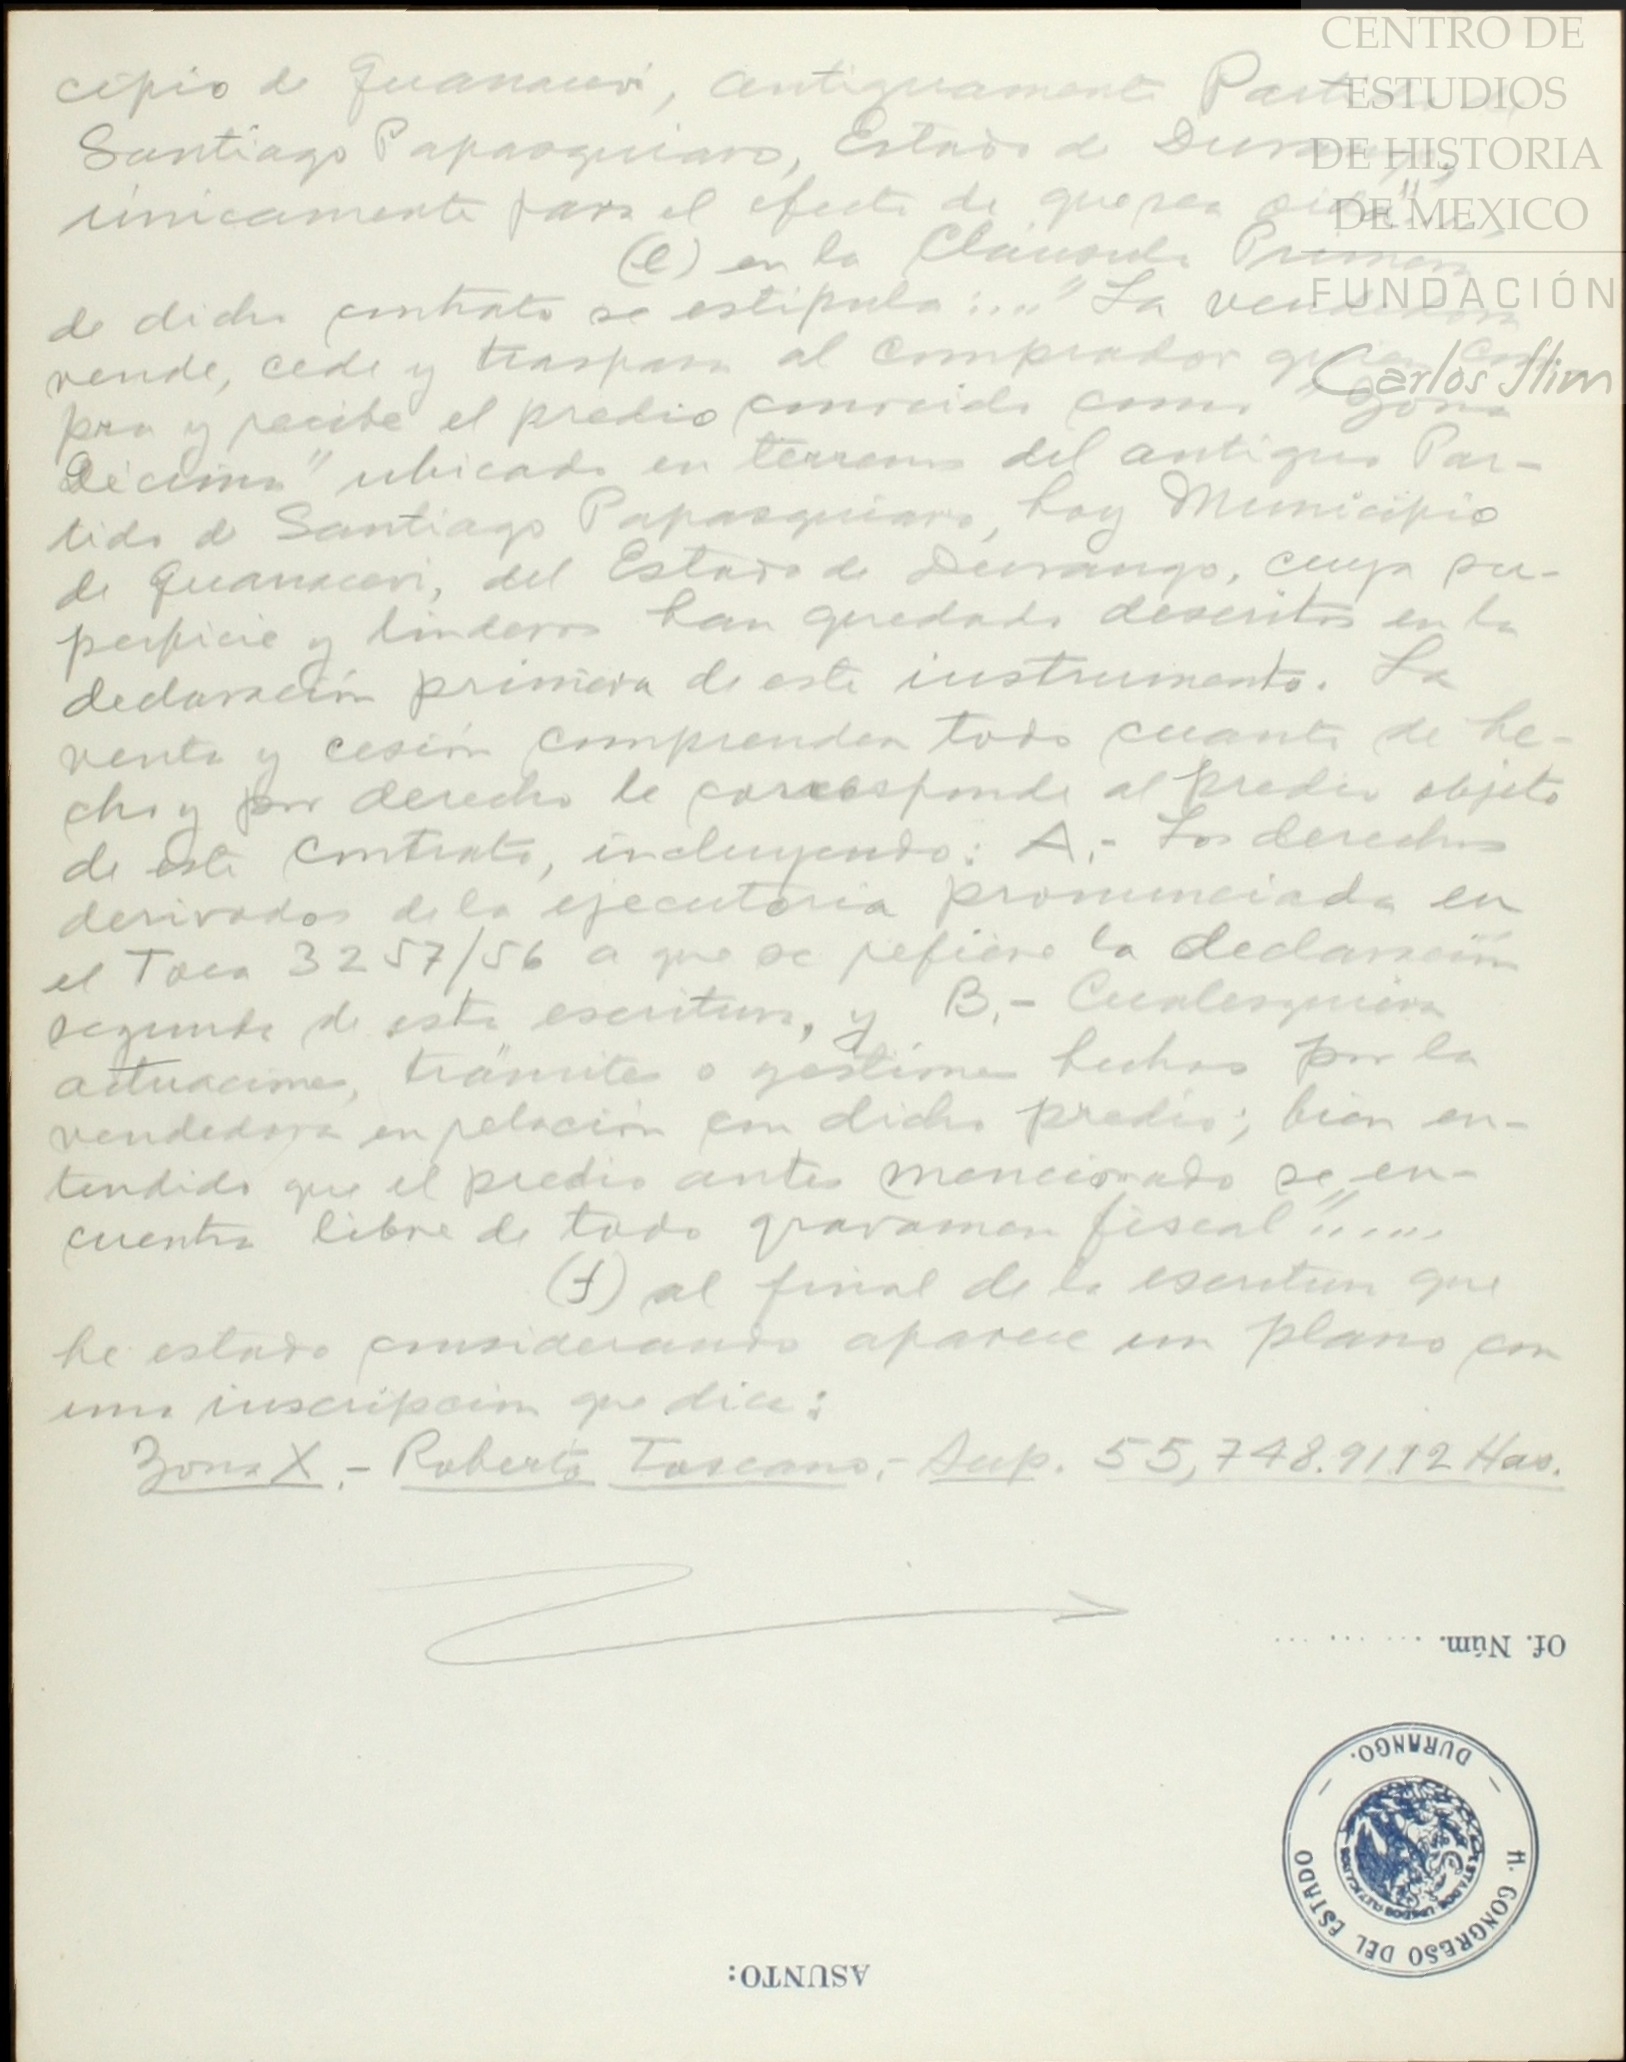 cipio de Guanaceví, antiguamente Partido de
Santiago Papasquiaro, Estado de Durango,
únicamente para el efecto de que sea oida"....
(e) en la Cláusula Primera
de dicho contrato se estipula:..." La vendedora
vende, cede y traspasa al comprador quien com-
pra y recibe el predio conocido como "Zona
Décima" ubicado en terrenos del antiguo Par-
tido de Santiago Papasquiaro, hoy Municipio
de Guanaceví, del Estado de Durango, cuya su-
perficie y linderos han quedado descritos en la
declaración primera de este instrumento. La
venta y cesión comprenden todo cuanto de he-
cho y por derecho le corresponde al predio objeto
de este contrato, incluyendo: A.- Los derechos
derivados de la ejecutoria pronunciada en
el Toca 3257/56 a que se refiere la declaración
segunda de esta escritura, y B.- Cualesquiera
actuaciones, trámites o gestiones hechos por la
vendedora en relación con dicho predio; bien en-
tendido que el predio antes mencionado se en-
cuentra libre de todo gravamen fiscal".....
(f) al final de la escritura que
he estado considerando aparece un plano con
una inscripción que dice:
Zona X.- Roberto Toscano.- Sup. 55,748.9112 Has.
Of. Núm. ... ... ...
H. CONGRESO DEL ESTADO
- DURANGO. -
ESTADOS UNIDOS MEXICANOS
ASUNTO:
CENTRO DE
ESTUDIOS
DE HISTORIA
DE MEXICO
FUNDACIÓN
Carlos Slim